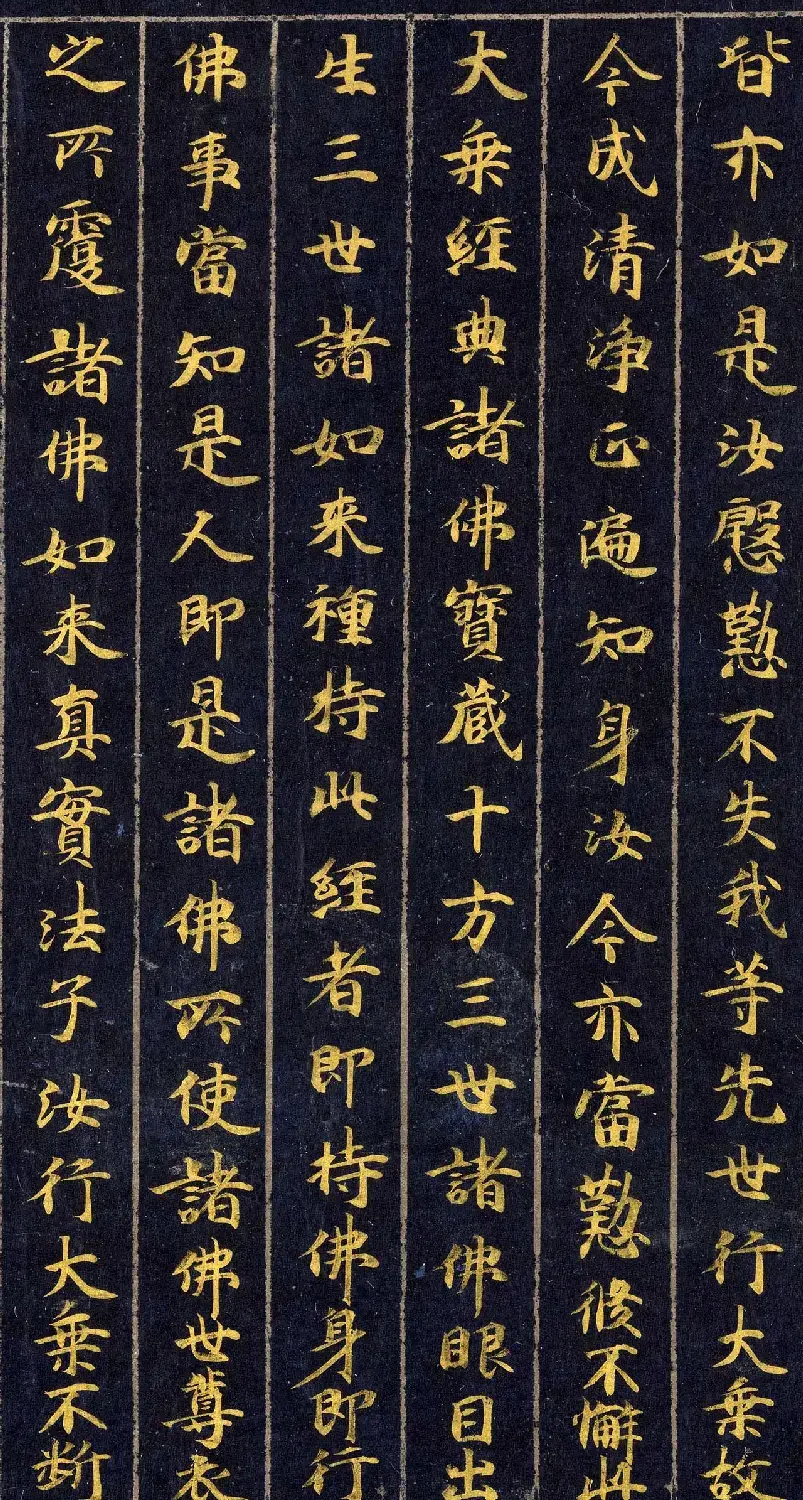 皆亦如是汝慇懃不失我等先世行大乗故
今成清淨正遍知身汝今亦當懃修不懈此
大乗經典諸佛寶藏十方三世諸佛眼目出
生三世諸如来種持此經者即持佛身即行
佛事當知是人即是諸佛所使諸佛世尊衣
之所覆諸佛如来真實法子汝行大乗不断